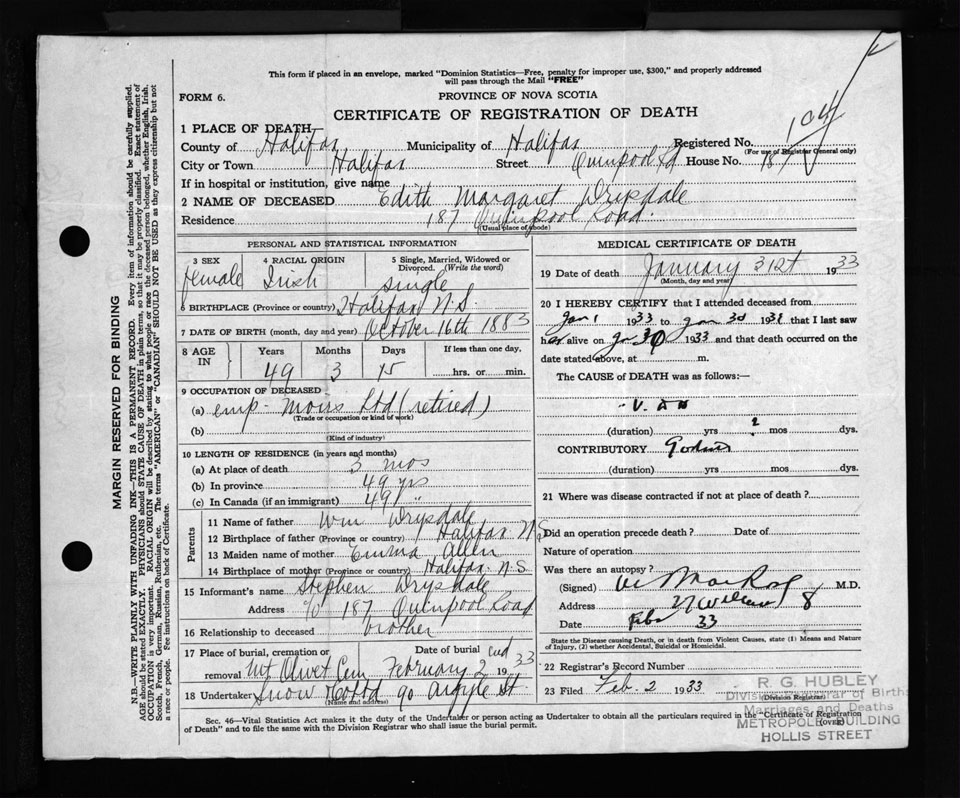 This form if placed in an envelope, marked "Dominion Statistics—Free, penalty for improper use, $300," and properly addressed
will pass through the Mail "FREE"
FORM 6.
PROVINCE OF NOVA SCOTIA
CERTIFICATE OF REGISTRATION OF DEATH
1 PLACE OF DEATH
County of Halifax Municipality of Halifax Registered No. 104
(For use of Registrar General only)
City or Town Halifax Street Quinpool Rd House No. 187
If in hospital or institution, give name
2 NAME OF DECEASED Edith Margaret Drysdale
Residence 187 Quinpool Road.
(Usual place of abode)
PERSONAL AND STATISTICAL INFORMATION
3 SEX 4 RACIAL ORIGIN 5 Single, Married, Widowed or
Divorced. (Write the word)
female Irish single
6 BIRTHPLACE (Province or country) Halifax N.S.
7 DATE OF BIRTH (month, day and year) October 16th 1883
8 AGE IN Years Months Days If less than one day.
49 3 15 hrs. or min.
9 OCCUPATION OF DECEASED
(a) emp- Moirs Ltd (retired)
(Trade or occupation or kind of work)
(b)
(Kind of industry)
10 LENGTH OF RESIDENCE (in years and months)
(a) At place of death 3 mos
(b) In province 49 yrs
(c) In Canada (if an immigrant) 49 "
Parents
11 Name of father Wm Drysdale
12 Birthplace of father (Province or country) Halifax N.S
13 Maiden name of mother Emma Allen
14 Birthplace of mother (Province or country) Halifax N.S
15 Informant's name Stephen Drysdale
Address c/o 187 Quinpool Road
16 Relationship to deceased brother
17 Place of burial, cremation or Date of burial
removal Mt Olivet Cem February 2nd 1933
18 Undertaker Snow & Co Ltd 90 Argyle St.
(Name and address)
MEDICAL CERTIFICATE OF DEATH
19 Date of death January 31st 1933
(Month, day and year)
20 I HEREBY CERTIFY that I attended deceased from
Jan 1 1933 to Jan 1933 that I last saw
her alive on Jan 30 1933 and that death occurred on the
date stated above, at m.
The CAUSE of DEATH was as follows:—
(duration) yrs ? mos dys.
CONTRIBUTORY
(duration) yrs mos dys.
21 Where was disease contracted if not at place of death?
Did an operation precede death? Date of
Nature of operation
Was there an autopsy?
(Signed) M.D.
Address
Date Feb 33
State the Disease causing Death, or in death from Violent Causes, state (1) Means and Nature
of Injury, (2) whether Accidental, Suicidal or Homicidal.
22 Registrar's Record Number
23 Filed Feb. 2 1933
(Division Registrar)
R. G. HUBLEY
Division Registrar of Births
Marriages and Deaths
METROPOLE BUILDING
HOLLIS STREET
(OVER)
Sec. 46—Vital Statistics Act makes it the duty of the Undertaker or person acting as Undertaker to obtain all the particulars required in the "Certificate of Registration
of Death" and to file the same with the Division Registrar who shall issue the burial permit.
MARGIN RESERVED FOR BINDING
N.B.—WRITE PLAINLY WITH UNFADING INK—THIS IS A PERMANENT RECORD. Every item of information should be carefully supplied.
AGE should be stated EXACTLY. PHYSICIANS should STATE CAUSE OF DEATH in plain terms, so that it may be properly classified. Exact statement of
OCCUPATION is very important. RACIAL ORIGIN will be described by stating to what people or race the deceased person belonged, whether English, Irish,
Scotch, French, German, Russian, Ruthenian, etc. The terms "AMERICAN" or "CANADIAN" SHOULD NOT BE USED as they express citizenship but not
a race or people. See instructions on back of Certificate.